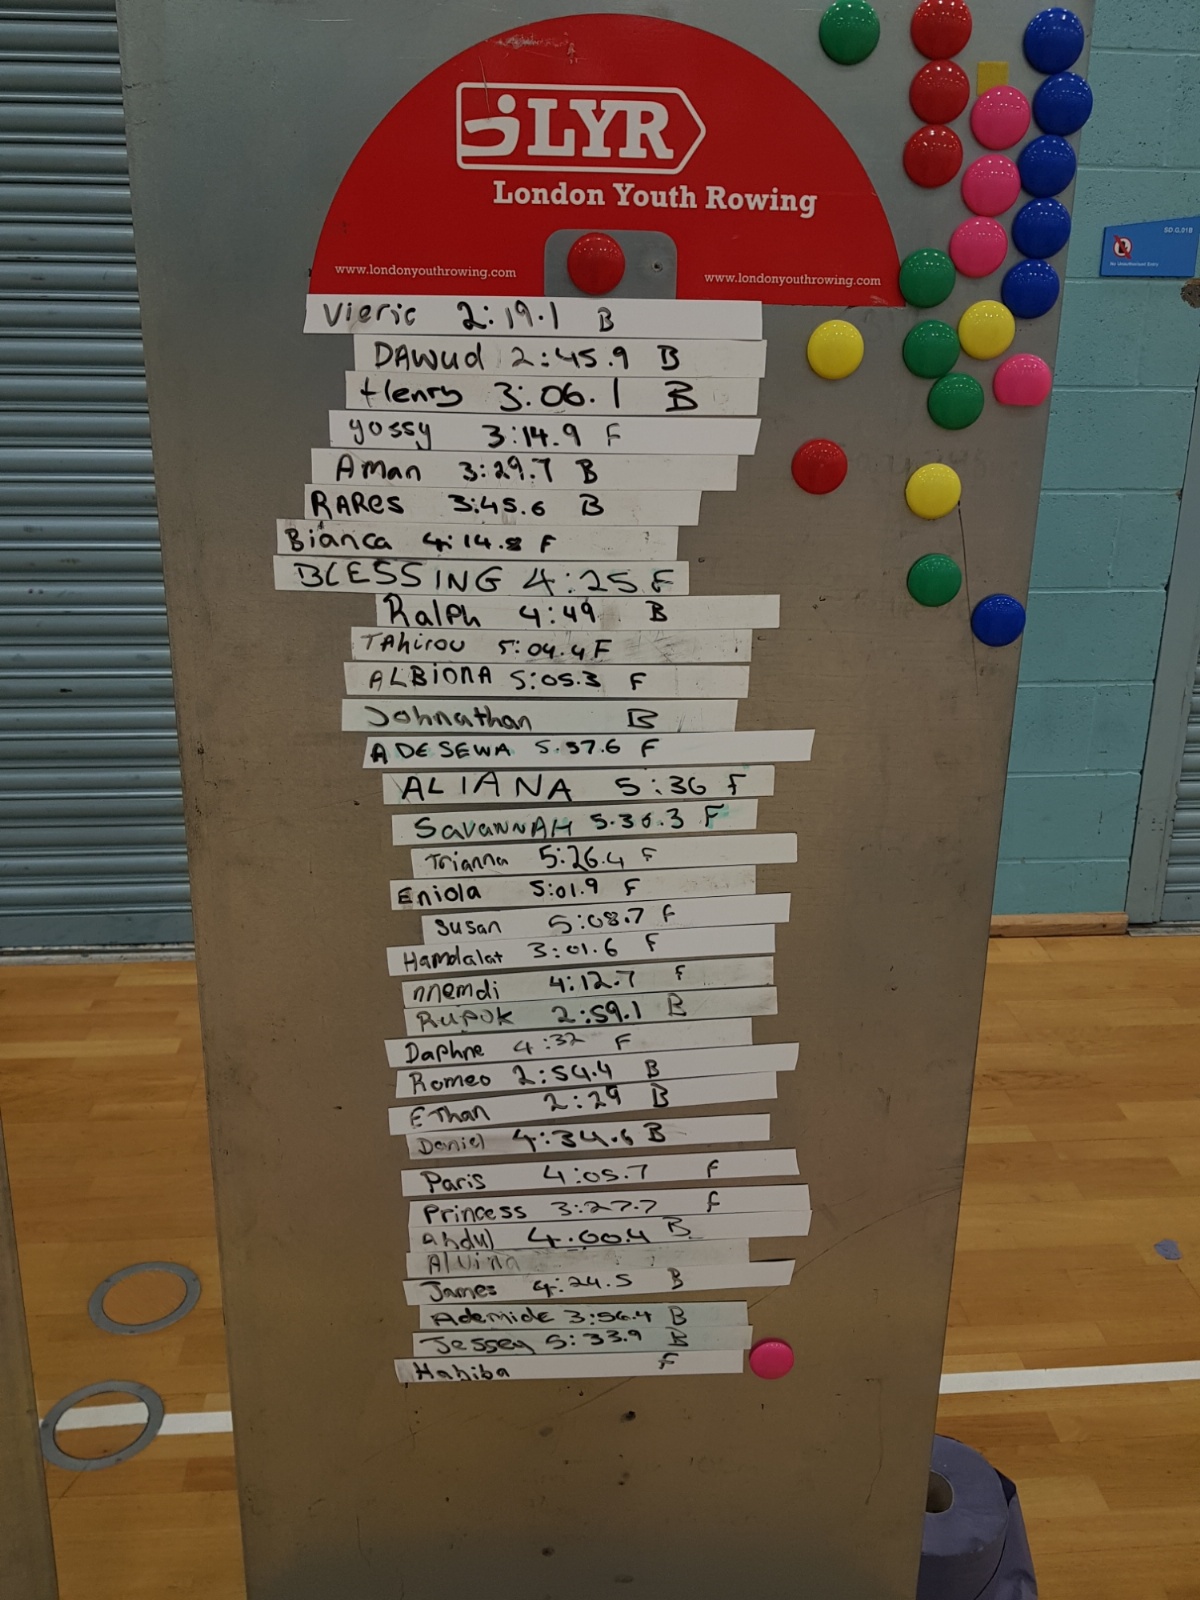 LYR
London Youth Rowing
www.londonyouthrowing.com
www.londonyouthrowing.com
SD G.01B
No Unauthorised Entry
Vieric 2:19.1 B
DAWUD 2:45.9 B
Henry 3:06.1 B
yossy 3:14.9 F
Aman 3:29.7 B
RARES 3:45.6 B
Bianca 4:14.8 F
BLESSING 4:25 F
Ralph 4:49 B
TAhirou 5:04.4 F
ALBiONA 5:05.3 F
Johnathan B
ADESEWA 5.37.6 F
ALIANA 5:36 F
SavanNAH 5.36.3 F
Trianna 5:26.4 F
Eniola 5:01.9 F
Susan 5:08.7 F
Hamdalat 3:01.6 F
nnemdi 4:12.7 F
Rupok 2:59.1 B
Daphne 4:32 F
Romeo 2:54.4 B
EThan 2:29 B
Daniel 4:34.6 B
Paris 4:05.7 F
Princess 3:27.7 F
Abdul 4.00.4 B
Alvina
James 4:24.5 B
Ademide 3:56.4 B
Jessey 5:33.9 B
Habiba F